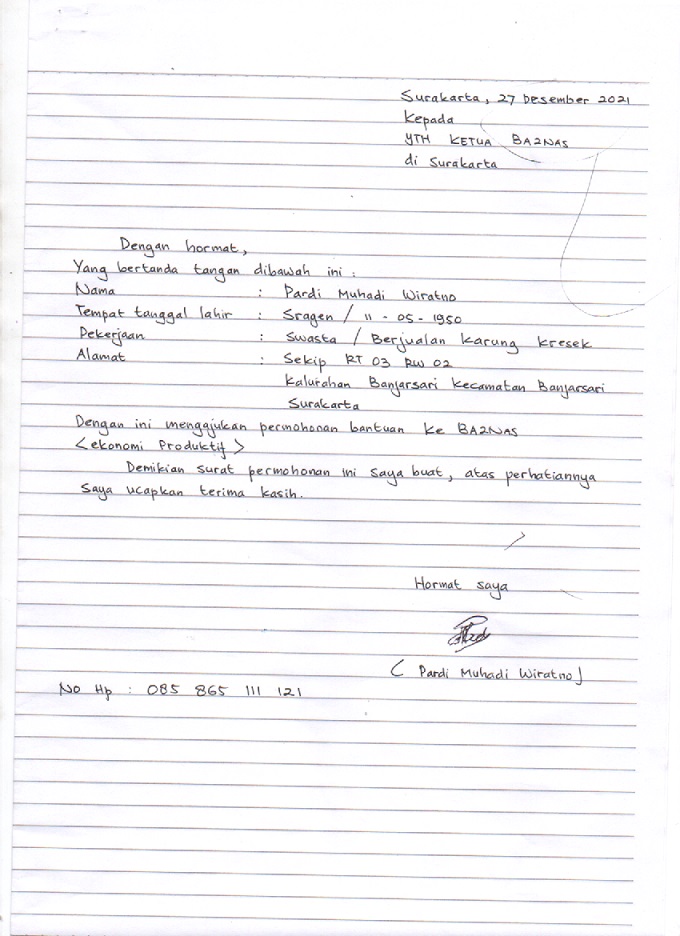 Surakarta, 27 Desember 2021
Kepada
YTH KETUA BAZNAS
di Surakarta
Dengan hormat,
Yang bertanda tangan dibawah ini :
Nama : Pardi Muhadi Wiratno
Tempat tanggal lahir : Sragen / 11 - 05 - 1950
Pekerjaan : Swasta / Berjualan Karung Kresek
Alamat : Sekip RT 03 RW 02
Kalurahan Banjarsari Kecamatan Banjarsari
Surakarta
Dengan ini mengajukan permohonan bantuan ke BAZNAS
<ekonomi Produktif>
Demikian surat permohonan ini saya buat, atas perhatiannya
Saya ucapkan terima kasih.
Hormat saya
( Pardi Muhadi Wiratno )
No Hp : 085 865 111 121